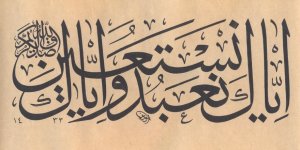 اِيَّاكَ نَعْبُدُ وَاِيَّاكَ نَسْتَعِينُ
١٤٣٣